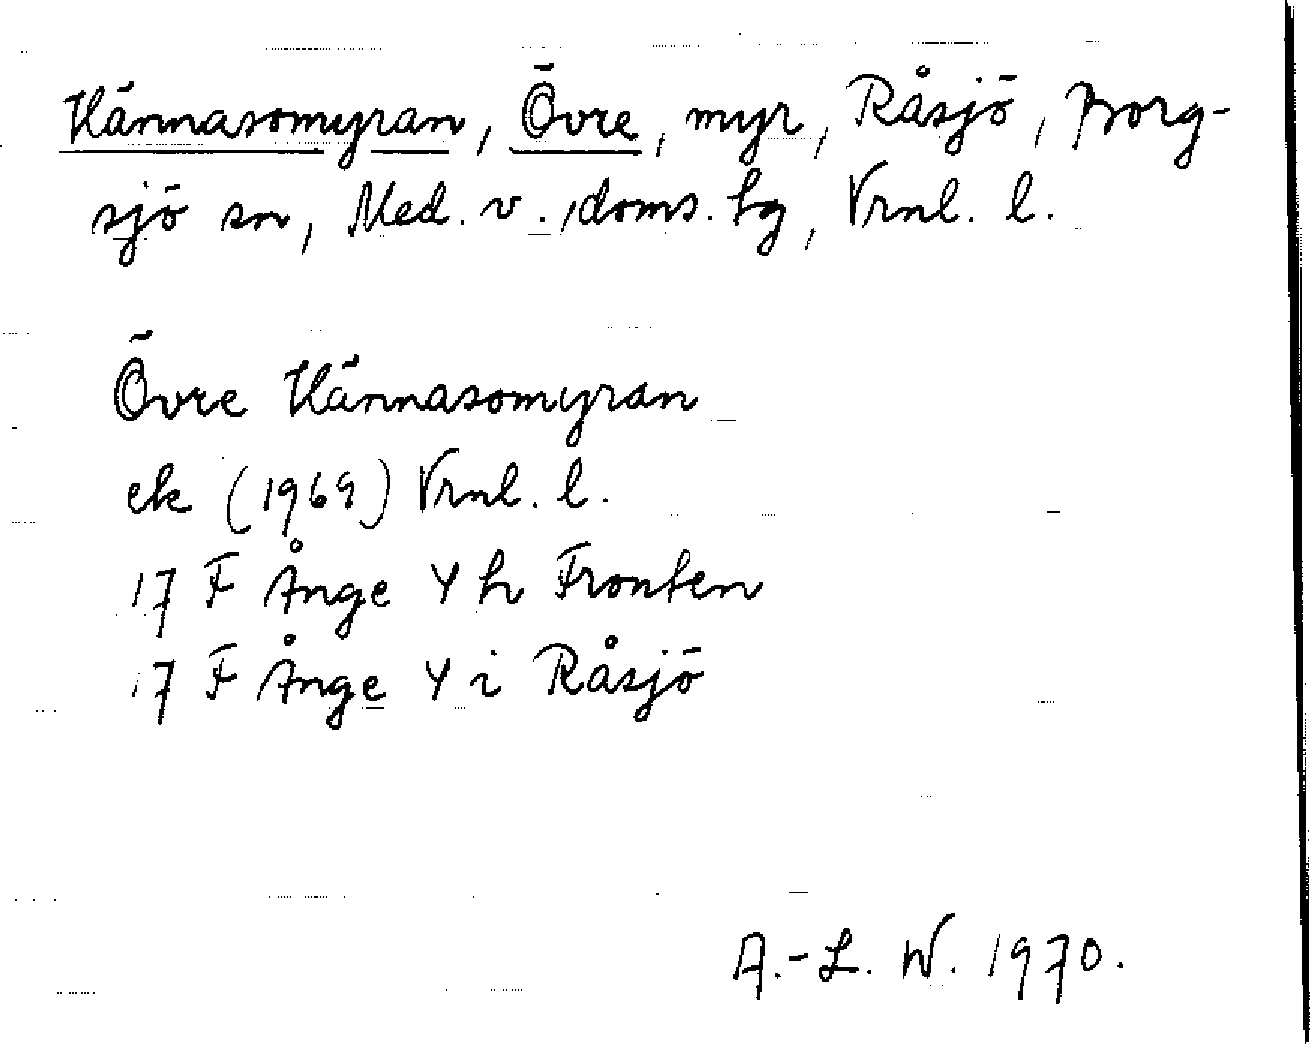 Kännasomyran, Övre, myr, Råsjö, Borg-
sjö sn, Med. v. doms. hg, Vrnl. l.
Övre Kännasomyran
ek (1969) Vrnl. l.
17 F Ånge Y h Fronten
17 F Ånge Y i Råsjö
A.-L. W. 1970.